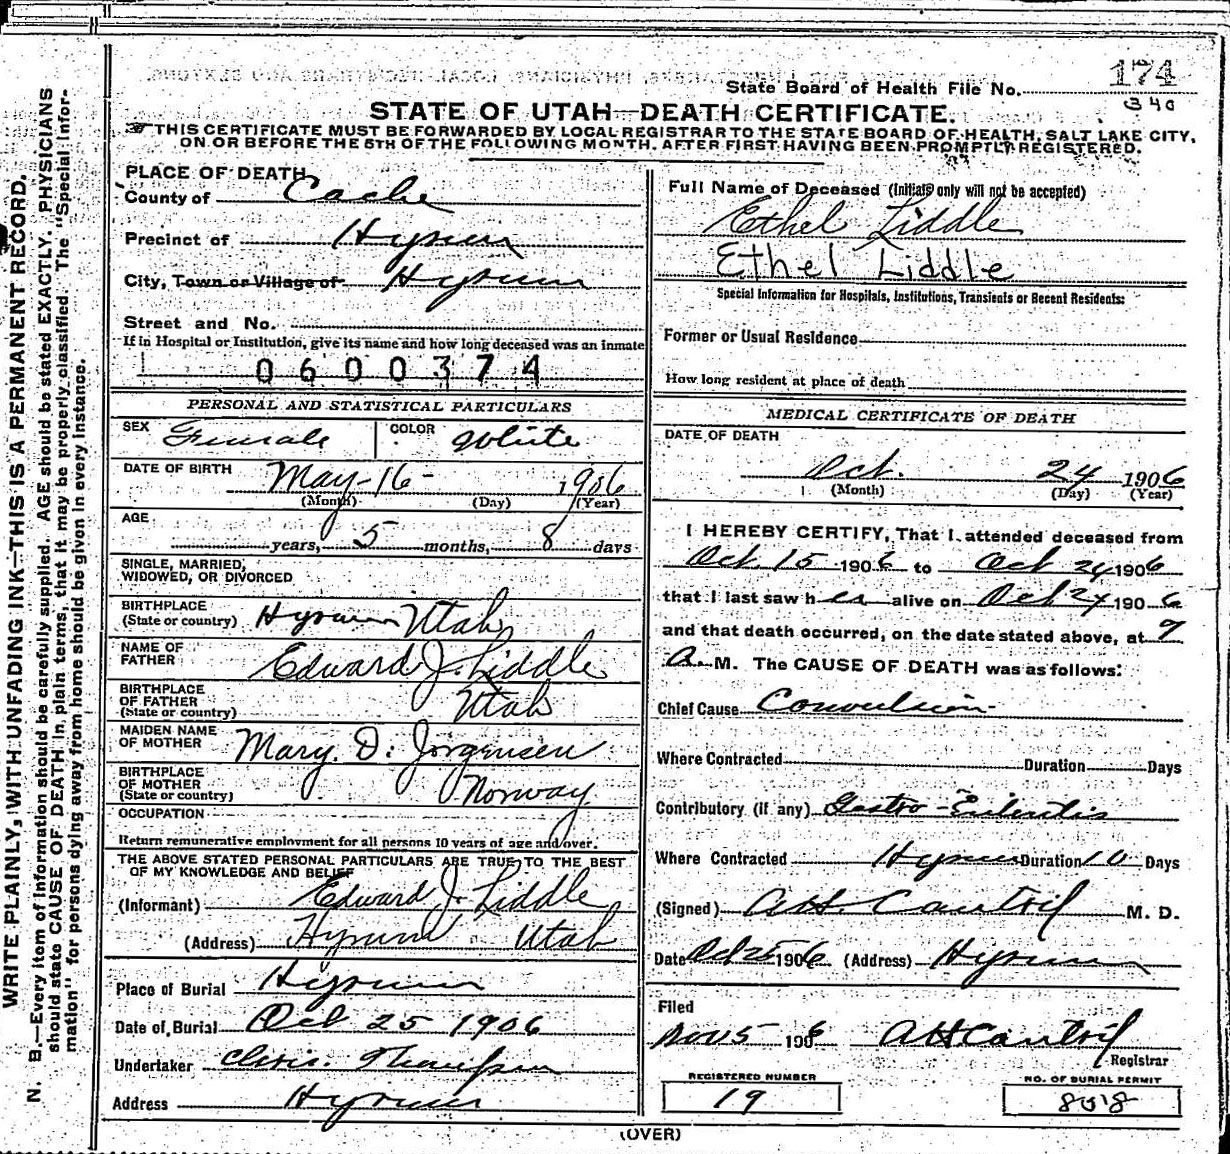 174
State Board of Health File No.
340
STATE OF UTAH—DEATH CERTIFICATE.
THIS CERTIFICATE MUST BE FORWARDED BY LOCAL REGISTRAR TO THE STATE BOARD OF HEALTH, SALT LAKE CITY,
ON OR BEFORE THE 5TH OF THE FOLLOWING MONTH. AFTER FIRST HAVING BEEN PROMPTLY REGISTERED.
WRITE PLAINLY, WITH UNFADING INK—THIS IS A PERMANENT RECORD.
N. B.—Every item of information should be carefully supplied. AGE should be stated EXACTLY. PHYSICIANS
should state CAUSE OF DEATH in plain terms, that it may be properly classified. The "Special Infor-
mation" for persons dying away from home should be given in every instance.
PLACE OF DEATH
County of Cache
Precinct of Hyrum
City, Town or Village of Hyrum
Street and No.
If in Hospital or Institution, give its name and how long deceased was an inmate
0600374
PERSONAL AND STATISTICAL PARTICULARS
SEX Female COLOR White
DATE OF BIRTH May-16- 1906
(Month) (Day) (Year)
AGE
years, 5 months, 8 days
SINGLE, MARRIED,
WIDOWED, OR DIVORCED
BIRTHPLACE
(State or country) Hyrum Utah
NAME OF
FATHER Edward J. Liddle
BIRTHPLACE
OF FATHER
(State or country) Utah
MAIDEN NAME
OF MOTHER Mary. D. Jorgensen
BIRTHPLACE
OF MOTHER
(State or country) Norway
OCCUPATION
Return remunerative employment for all persons 10 years of age and over.
THE ABOVE STATED PERSONAL PARTICULARS ARE TRUE TO THE BEST
OF MY KNOWLEDGE AND BELIEF
(Informant) Edward J. Liddle
(Address) Hyrum Utah
Place of Burial Hyrum
Date of Burial Oct 25 1906
Undertaker
Address Hyrum
Full Name of Deceased (Initials only will not be accepted)
Ethel Liddle
Ethel Liddle
Special Information for Hospitals, Institutions, Transients or Recent Residents:
Former or Usual Residence
How long resident at place of death
MEDICAL CERTIFICATE OF DEATH
DATE OF DEATH
Oct. 24 1906
(Month) (Day) (Year)
I HEREBY CERTIFY, That I attended deceased from
Oct 15 1906 to Oct 24 1906
that I last saw her alive on Oct 24 1906
and that death occurred, on the date stated above, at 9
A. M. The CAUSE OF DEATH was as follows:
Chief Cause Convulsion
Where Contracted Duration Days
Contributory (if any) Gastro-Enteritis
Where Contracted Hyrum Duration 10 Days
(Signed) A.H. Cantril M. D.
Date Oct 25 1906 (Address) Hyrum
Filed
Nov 5 1906 A H Cantril
Registrar
REGISTERED NUMBER
19
NO. OF BURIAL PERMIT
(OVER)